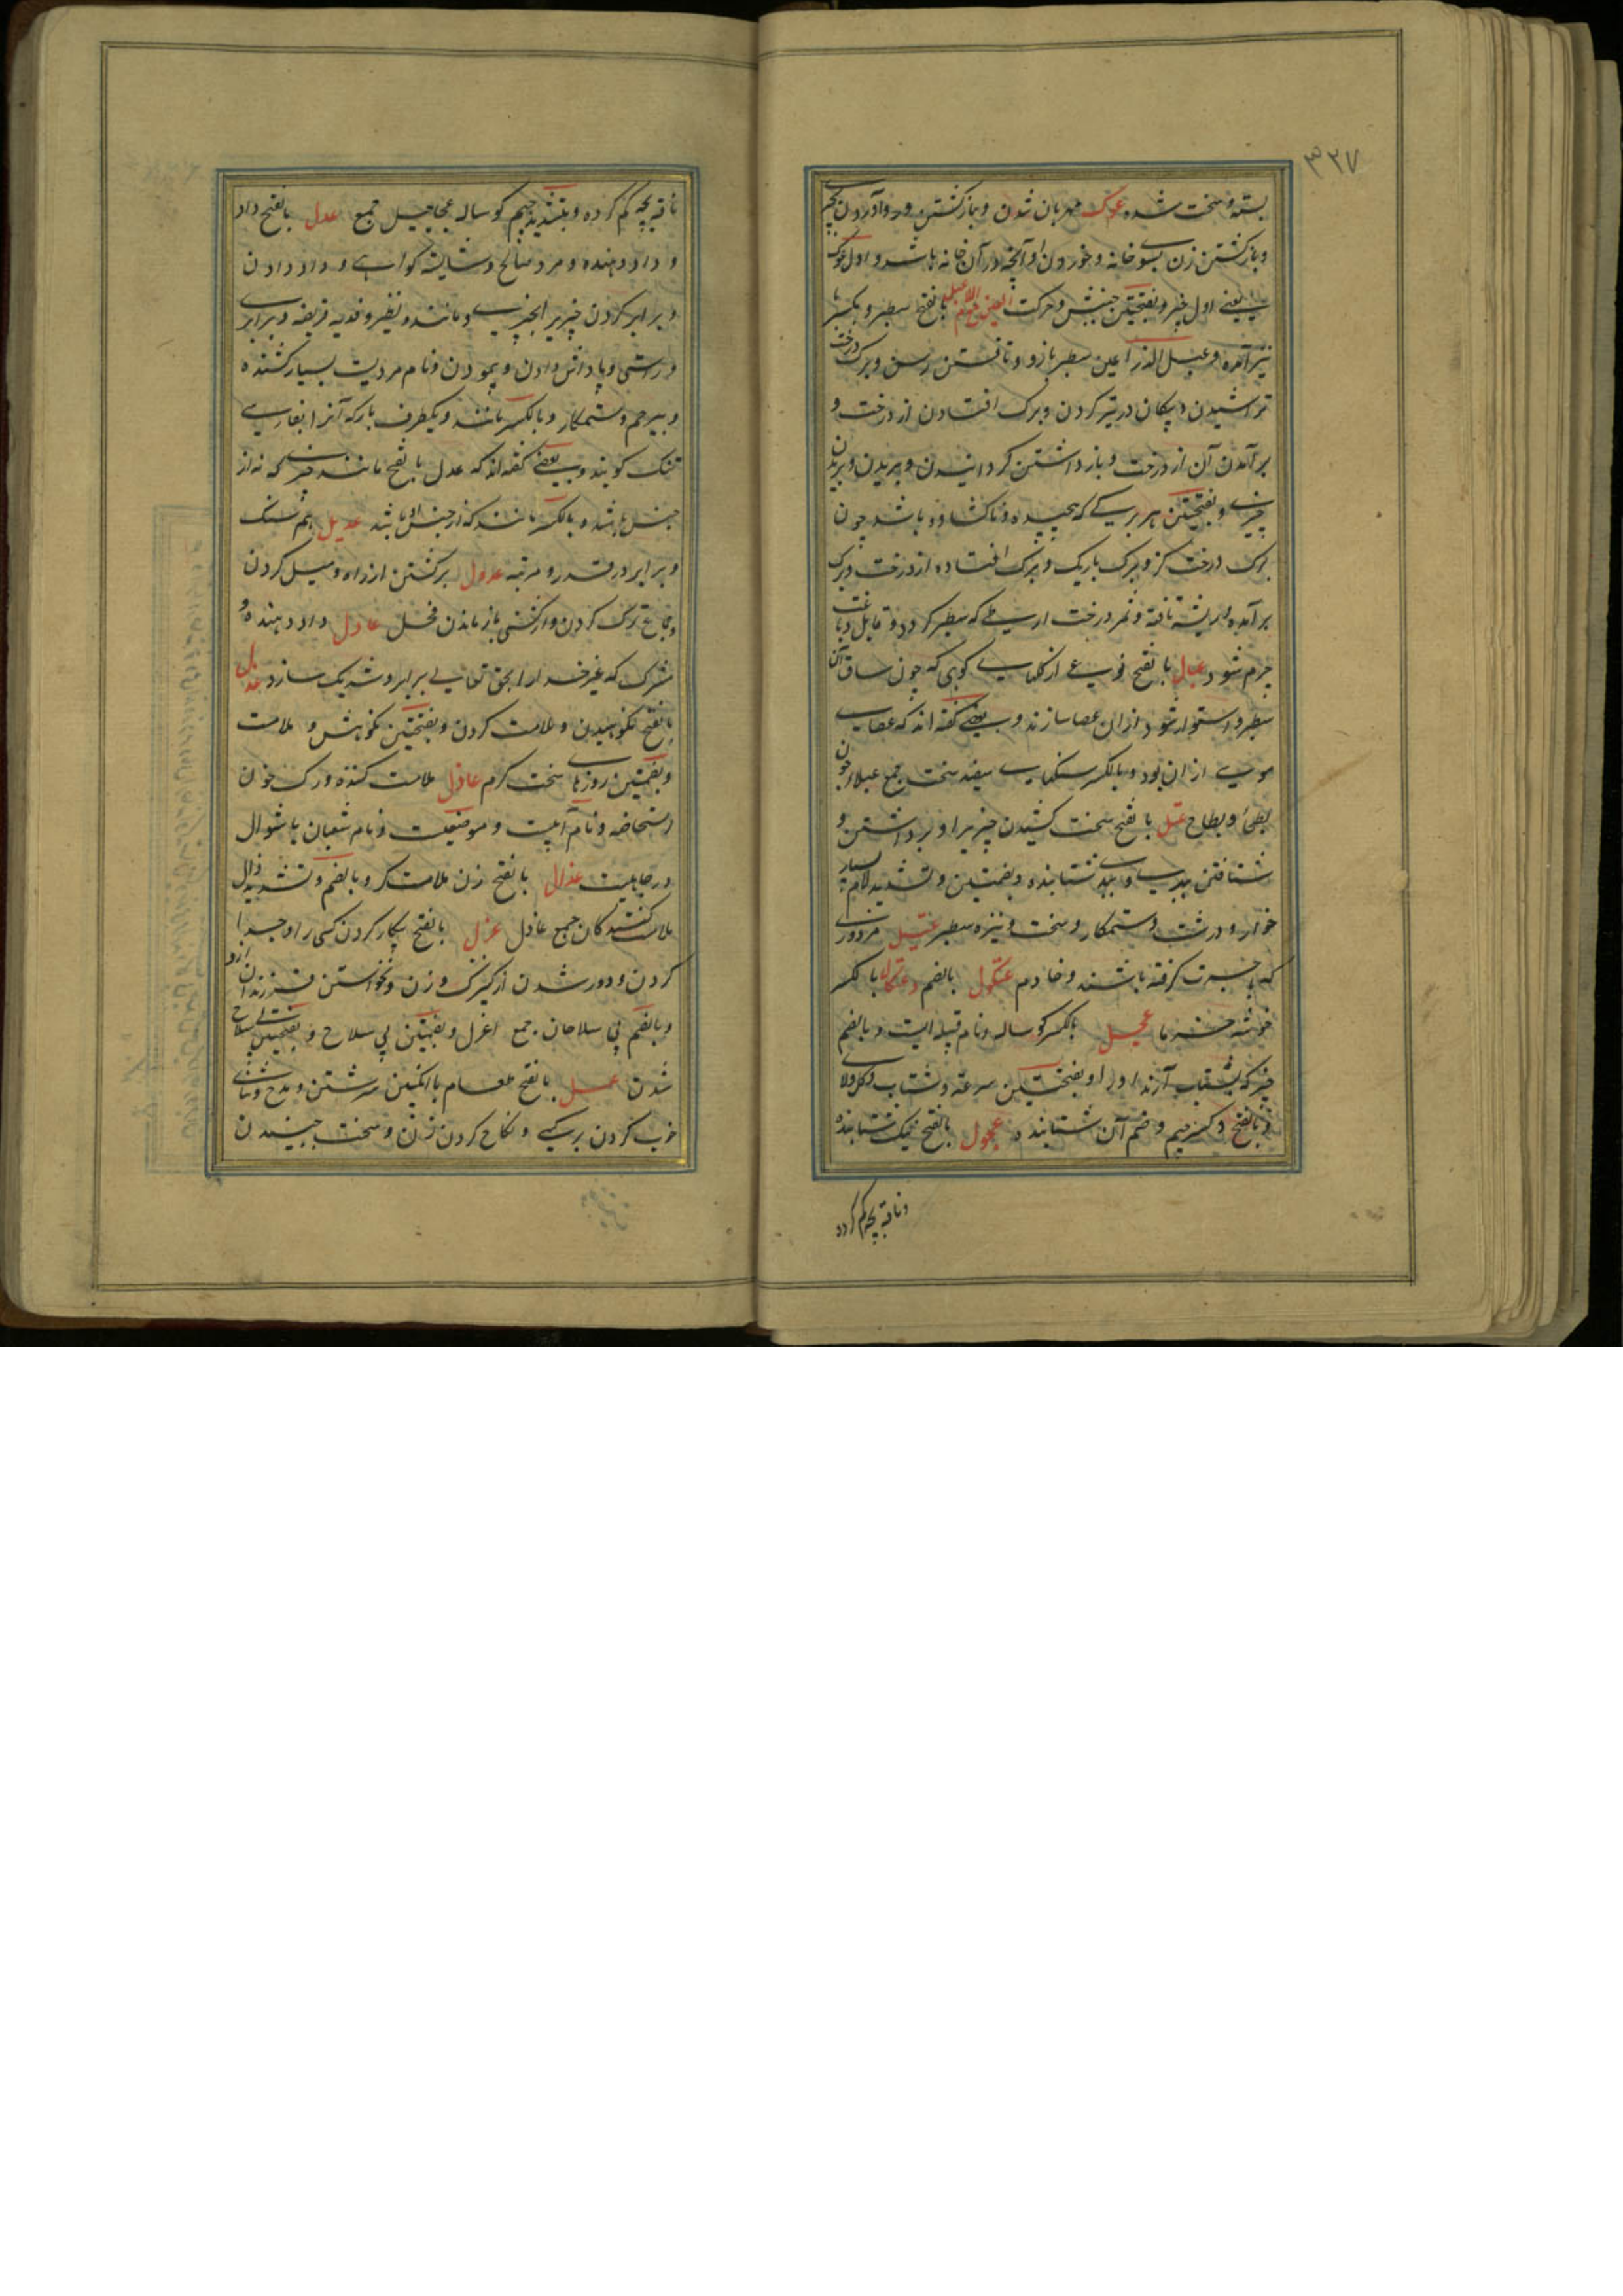 ۳۲۷
بسته و سخت شده عوک مهربان شدن و بازگشتن و
و بازکشتن زن بسوی خانه و خوردن او آنچه در آن خانه باشد و اول عوک
یعنی اول چیز و بفتحتین جنبش و حرکت العین مع اللام عبل بالفتح سطبر و بکسر با
نیز آمده و عبل الذراعین سطبر بازو و تافتن رسن و برک درخت
تراشیدن و پیکان در تیر کردن و برک افتادن از درخت و
برآمدن آن از درخت و بازداشتن کردانیدن و بریدن و بریدن
چیزی و بفتحتین هر برکے که پیچیده و ناکشاده باشد چون
برک درخت کز و برک باریک و برک افتاده از درخت و برک
برآمده و ریشه تافته و ثمر درخت ارطے که سطبر کردد و قابل دباغت
چرم شود عبال بالفتح نوعے از کلهاے کوهی که چون ساق آن
سطبر و استوار شود از ان عصا سازند و بعضے کفته اند که عصاے
موسے از ان بود و بالکسر سنکهاے سفید سخت جمع عبلاء چون
بطحاء و بطاح عتل بالفتح سخت کشیدن چیزیرا و برداشتن و
شتافتن ببدے و ببدے شتابنده و بضمتین و تشدید لام بسیار
خوار و درشت و ستمکار و سخت و نیزه سطبر عتیل مزدوری
که باجرت کرفته باشند و خادم عثکول بالضم و عثکال بالکسر
خوشه خرما عجل بالکسر کوساله و نام قبیله ایست و بالضم
چیزی که بشتاب آرند او را و بفتحتین سرعة و شتاب و کل و لای
و بالفتح و کسر جیم و ضم آن شتابنده عجول بالفتح نیک شتابنده
و ناقه بچه کم کرده
ناقه بچه کم کرده و بتشدید جیم کوساله عجاجیل جمع عدل بالفتح داد
و داد دهنده و مرد صالح و شایسته کواهے و داد دادن
و برابر کردن چیزیرا بچیزے و مانند و نظیر و فدیه فریضه و برابری
و راستی و پاداش دادن و پیمودن و نام مردیست بسیار کشنده
و بیرحم و ستمکار و بالکسر مانند و یکطرف بار که آنرا بفارسے
تنک کویند و بعضے کفته اند که عدل بالفتح مانند چیزے که نه از
جنس باشد و بالکسر مانند که از جنس او باشد عدیل هم سنک
و برابر در قدر و مرتبه عدول برکشتن از راه و میل کردن
و جماع ترک کردن و از کشنی باز ماندن فحل عادل داد دهنده و
مشرک که غیر خدا را بحق تعالے برابر و شریک سازد عذل
بالفتح نکوهیدن و ملامت کردن و بفتحتین نکوهش و ملامت
و بضمتین روزهاے سخت کرم عاذل ملامت کننده و رک خون
استحاضه و نام آبیست و موضعیست و نام شعبان یا شوال
در جاهلیت عذال بالفتح زن ملامت کر و بالضم و تشدید ذال
ملامت کنندکان جمع عاذل عزل بالفتح بیکار کردن کسی را و جدا
کردن و دور شدن از کنیزک و زن و نخواستن فرزند از و
و بالضم بی سلاحان جمع اعزل و بضمتین بی سلاح و بفتحتین بے سلاح
شدن عسل بالفتح طعام با انکبین سرشتن و مدح و ثناے
خوب کردن بر کسے و نکاح کردن زن و سخت جنبیدن